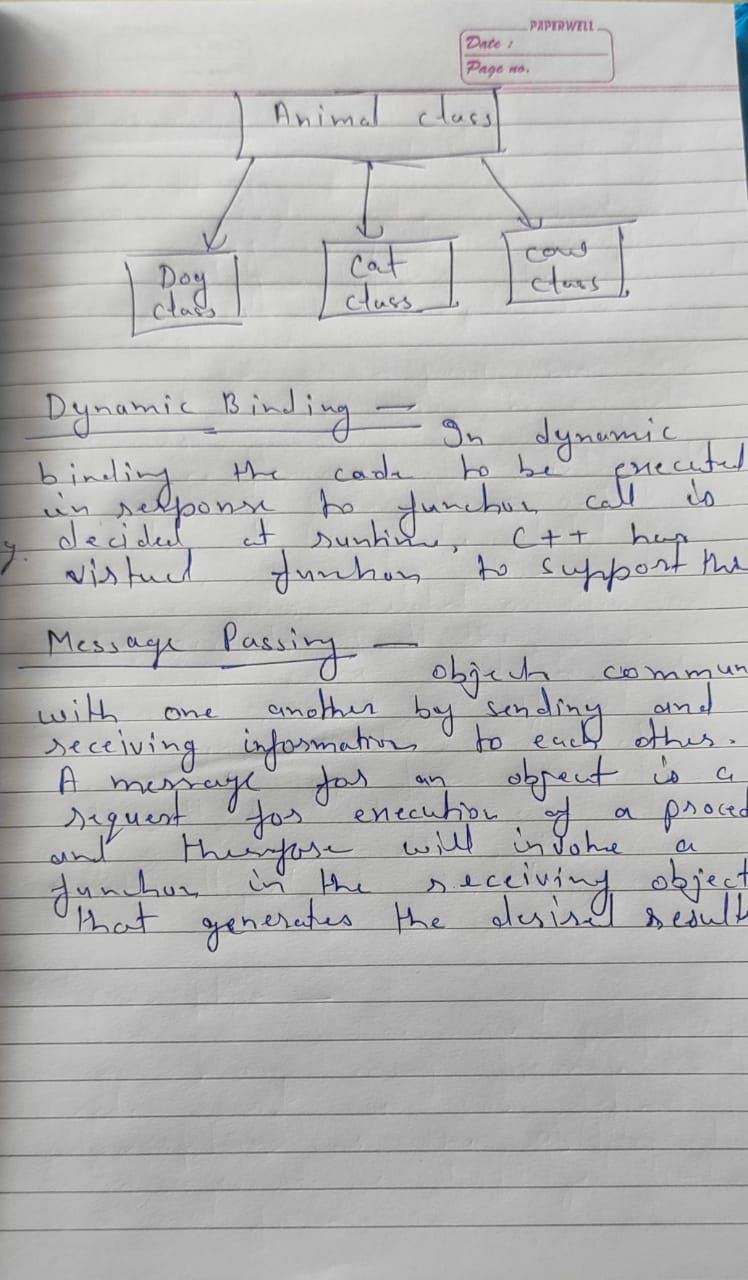 PAPERWELL
Date :
Page no.
Animal class
Dog
class
Cat
class
Cow
class
Dynamic Binding — In dynamic
binding the code to be executed
in response to function call is
decided at runtime, C++ has
virtual function to support the
Message Passing — objects commun
with one another by sending and
receiving information to each other.
A message for an object is a
request for execution of a proced
and therefore will invoke a
function in the receiving object
that generates the desired result